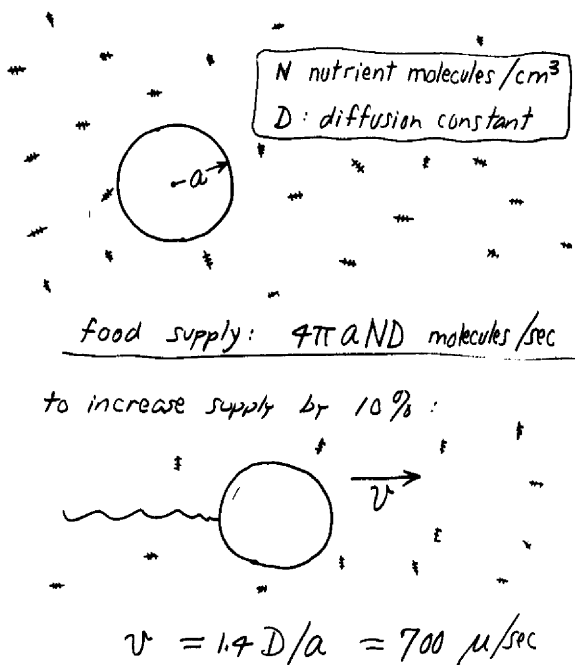 N nutrient molecules/cm³
D: diffusion constant
a
food supply: 4π a N D molecules/sec
to increase supply by 10%:
v
v = 1.4 D/a = 700 μ/sec